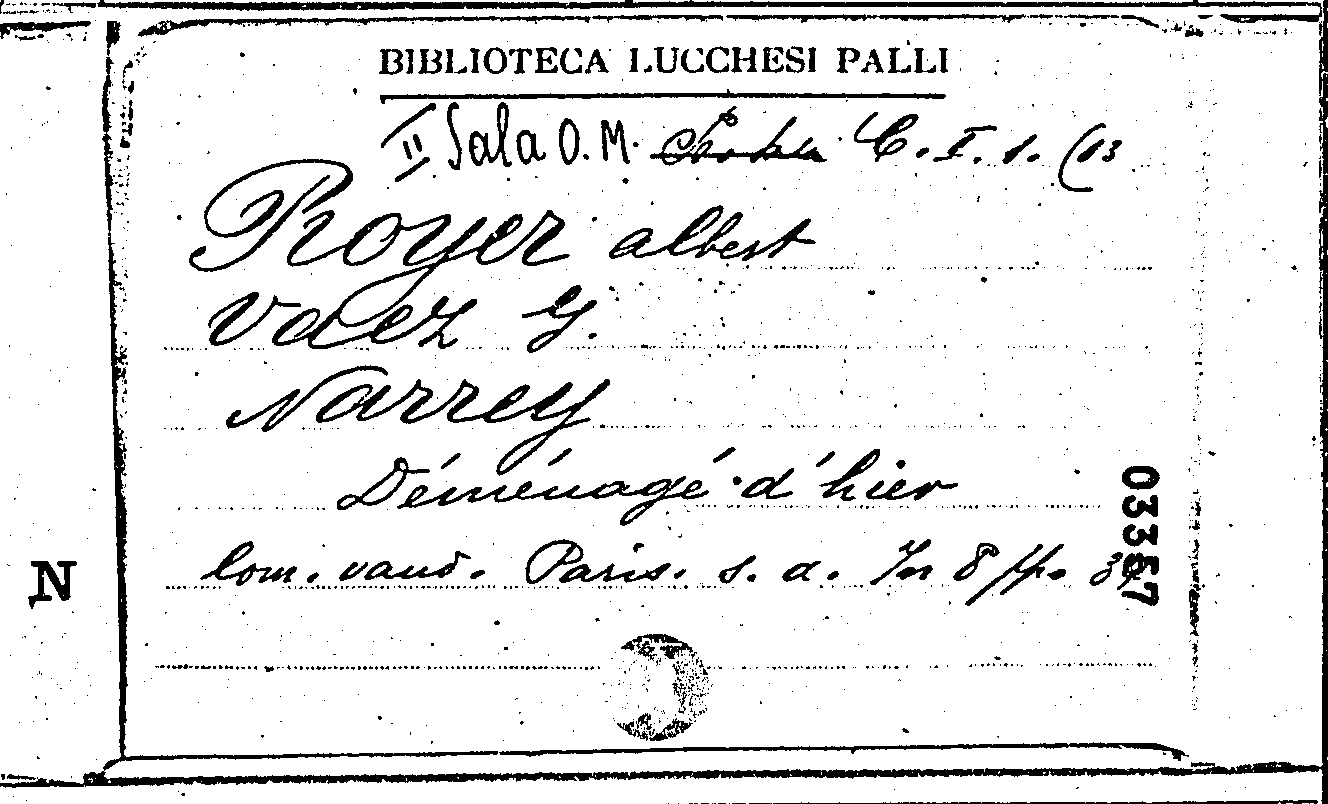 BIBLIOTECA LUCCHESI PALLI
II Sala O. M. C. I. 1. (13
Royer Albert
Vaez G.
Narrey
Déménagé d'hier
Com. vaud. Paris. s. d. In 8 pp.
03387
N